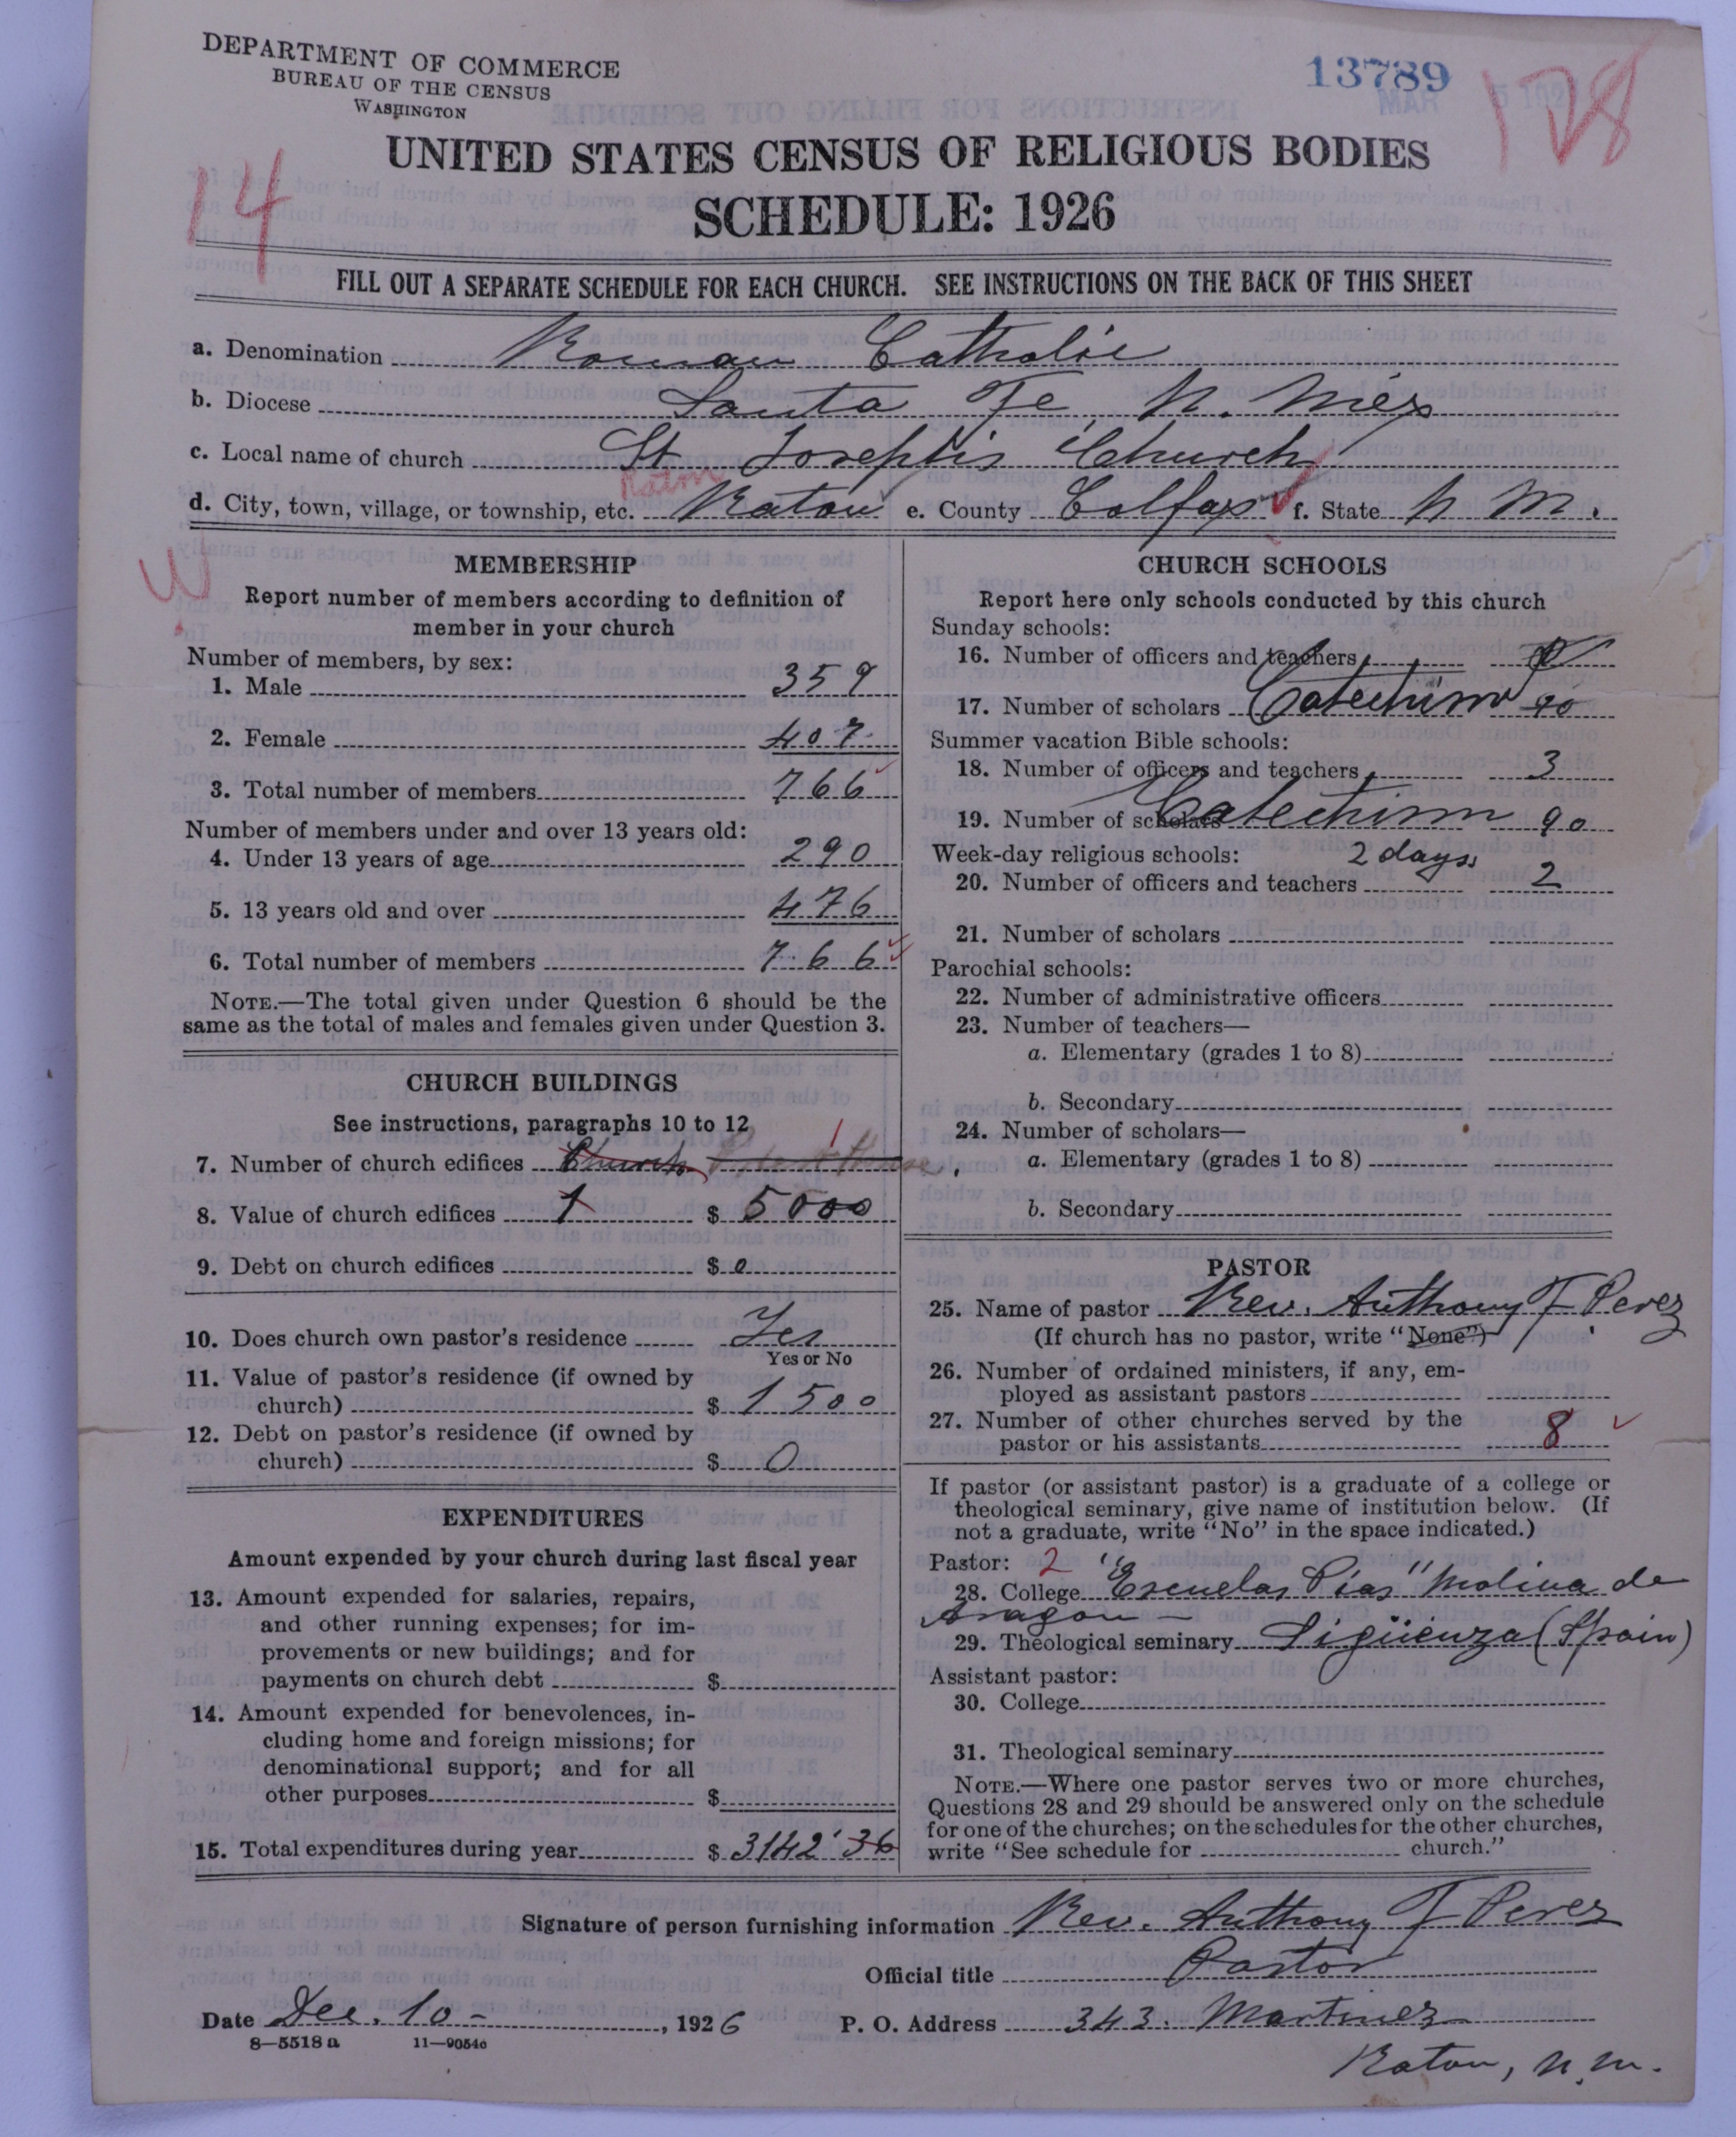 DEPARTMENT OF COMMERCE
BUREAU OF THE CENSUS
WASHINGTON
13789
128
14
UNITED STATES CENSUS OF RELIGIOUS BODIES
SCHEDULE: 1926
FILL OUT A SEPARATE SCHEDULE FOR EACH CHURCH. SEE INSTRUCTIONS ON THE BACK OF THIS SHEET
a. Denomination Roman Catholic
b. Diocese Santa Fe, N. Mex
c. Local name of church St Joseph's Church
Raton
d. City, town, village, or township, etc. Raton e. County Colfax f. State N M.
W
MEMBERSHIP
Report number of members according to definition of
member in your church
Number of members, by sex:
1. Male 359
2. Female 407
3. Total number of members 766
Number of members under and over 13 years old:
4. Under 13 years of age 290
5. 13 years old and over 476
6. Total number of members 766
NOTE.—The total given under Question 6 should be the
same as the total of males and females given under Question 3.
CHURCH BUILDINGS
See instructions, paragraphs 10 to 12
1
7. Number of church edifices Church
8. Value of church edifices 1 $ 5000
9. Debt on church edifices $ 0
10. Does church own pastor's residence Yes
Yes or No
11. Value of pastor's residence (if owned by
church) $ 1500
12. Debt on pastor's residence (if owned by
church) $ 0
EXPENDITURES
Amount expended by your church during last fiscal year
13. Amount expended for salaries, repairs,
and other running expenses; for im-
provements or new buildings; and for
payments on church debt $
14. Amount expended for benevolences, in-
cluding home and foreign missions; for
denominational support; and for all
other purposes $
15. Total expenditures during year $ 3142 36
CHURCH SCHOOLS
Report here only schools conducted by this church
Sunday schools:
16. Number of officers and teachers
17. Number of scholars Catechism 90
Summer vacation Bible schools:
18. Number of officers and teachers 3
19. Number of scholars Catechism 90
Week-day religious schools: 2 days
20. Number of officers and teachers 2
21. Number of scholars
Parochial schools:
22. Number of administrative officers
23. Number of teachers—
a. Elementary (grades 1 to 8)
b. Secondary
24. Number of scholars—
a. Elementary (grades 1 to 8)
b. Secondary
PASTOR
25. Name of pastor Rev. Anthony F Perez
(If church has no pastor, write "None")
26. Number of ordained ministers, if any, em-
ployed as assistant pastors
27. Number of other churches served by the
pastor or his assistants 8
If pastor (or assistant pastor) is a graduate of a college or
theological seminary, give name of institution below. (If
not a graduate, write "No" in the space indicated.)
Pastor: 2
28. College "Escuelas Pias" Molina de
Aragon —
29. Theological seminary Sigüenza (Spain)
Assistant pastor:
30. College
31. Theological seminary
NOTE.—Where one pastor serves two or more churches,
Questions 28 and 29 should be answered only on the schedule
for one of the churches; on the schedules for the other churches,
write "See schedule for church."
Signature of person furnishing information Rev. Anthony F Perez
Official title Pastor
Date Dec. 10 -, 1926 P. O. Address 343. Martinez
8—5518 a 11—9054c
Raton, N. M.